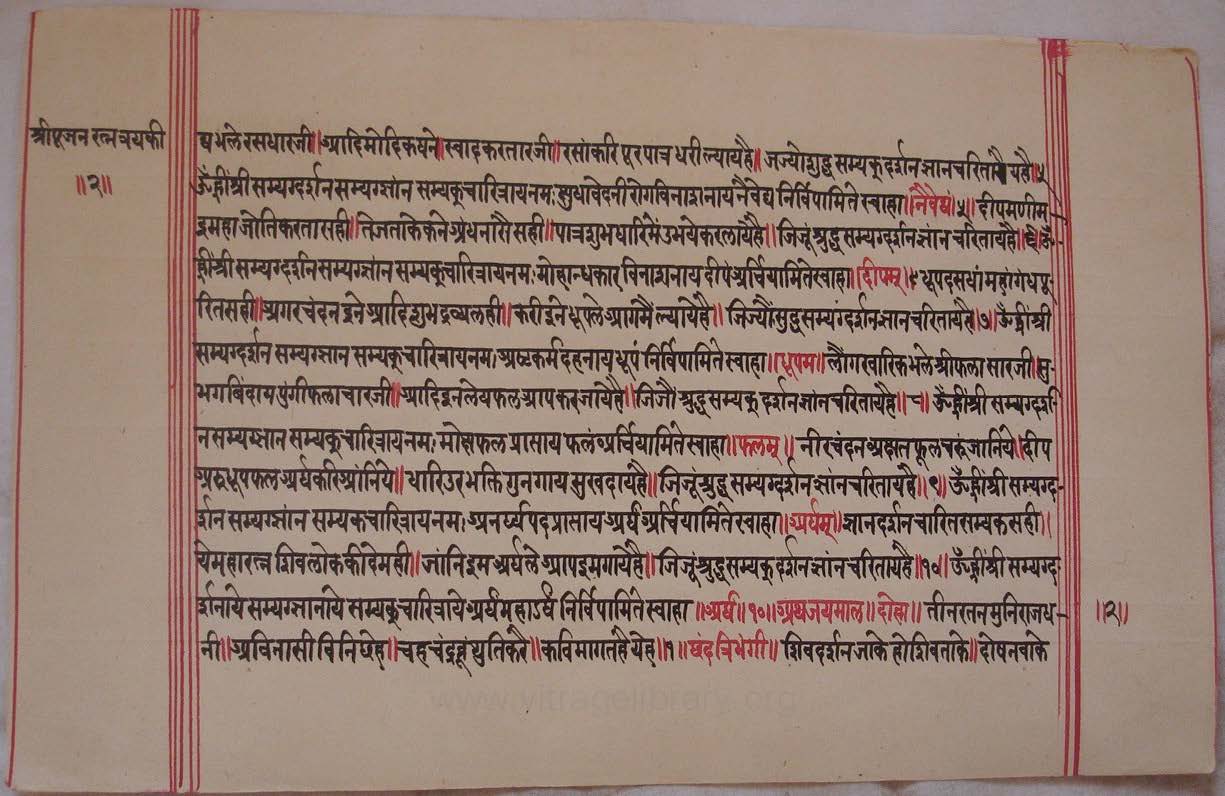 श्रीपूजन रत्नत्रयकी
॥२॥
द्यभलेरसधारजी॥आदिमोदिकघने॥स्वादकरतारजी॥रसांकरिपूरपात्रधरील्यायहै॥जज्योशुद्धसम्यक्दर्शनज्ञानचरिता यहै॥५
ॐह्रींश्रीसम्यग्दर्शनसम्यग्ज्ञांन सम्यक्चारित्रायनमः क्षुधावेदनीरोगविनाशनायनैवेद्य निर्विपामितेस्वाहा॥नैवेद्यं॥५॥ दीपमणीम-
इमहाजोतिकरतासही॥तेजताकेकने अंधनासैसही॥पात्रशुभधारिमें उभयेकरलायेहै॥जिजूंश्रुद्धसम्यग्दर्शनज्ञांनचरितायेहै॥ ॐ-
ह्रींश्रीसम्यग्दर्शनसम्यग्ज्ञांन सम्यक्चारित्रायनमः मोहान्धकारविनाशनाय दीपं अर्चियामितेस्वाहा॥दीपम्॥६धूपदसधां महांगंधपू-
रितसही॥अगरचंदनइने आदिशुभद्रव्यलही॥करीइनेधूपले आगमैंल्यायेहै॥जिज्यौंसुद्धसम्यंग्दर्शनज्ञानचरितायेहै॥७॥ॐह्रींश्री
सम्यग्दर्शन सम्यग्ज्ञान सम्यक्चारित्रायनमः अष्टकर्मदहनायधूपं निर्विपामितेस्वाहा॥धूपम॥लौंगखारिकभलेश्रीफलासारजी॥सु-
भगबिंदायपुंगीफलाचारजी॥आदिइनलेयफल आपकरजायेहै॥जिजौंश्रुद्धसम्यक्दर्शनज्ञांनचरितायेहै॥८॥ॐह्रींश्रीसम्यग्दर्श-
नसम्यग्ज्ञान सम्यक्चारित्रायनमः मोक्षफलप्रासाय फलं अर्चियामितेस्वाहा॥फलम्॥ नीरचंदन अक्षतफूलचरूजांनिये॥दीप
अरुधूपफल अर्घकरिआंनिये॥धारिउरभक्तिगुनगायसुखदायहै॥जिजूंश्रुद्धसम्यग्दर्शनज्ञांनचरितायहै॥९॥ॐह्रींश्रीसम्यग्द-
र्शनसम्यग्ज्ञांन सम्यकचारित्रायनमः अनर्घ्यपदप्रासाय अर्घं अर्चियामितेस्वाहा॥अर्घम्॥ज्ञानदर्शनचारितसम्यकसही॥
येमहारत्नशिवलोककीदेमही॥जांनिइमअर्घले आपइमगायेहै॥जिजूंश्रुद्धसम्यक्दर्शनज्ञांनचरितायहै॥१०॥ॐह्रींश्रीसम्यग्द-
र्शनाये सम्यग्ज्ञानाये सम्यक्चारित्राये अर्घंमहाऽर्घं निर्विपामितेस्वाहा॥अर्घं॥१०॥अथजयमाल॥दोहा॥ तीनरतनमुनिराजध-
नी॥अविनासी विनि ॥चहचंद थुतिकरै॥कविमागतहैयेह॥१॥छंदत्रिभंगी॥ शिवदर्शनजाके होशिवताके॥दोषनवाके
॥२॥
www.vitragelibrary.org